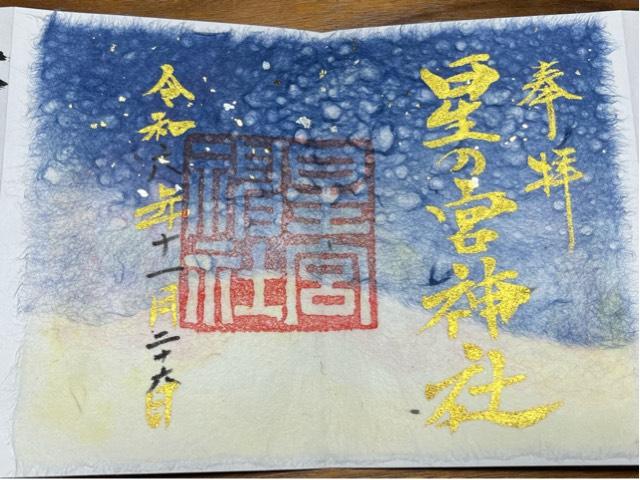 奉拝
星の宮神社
星宮神社
令和六年十一月二十六日